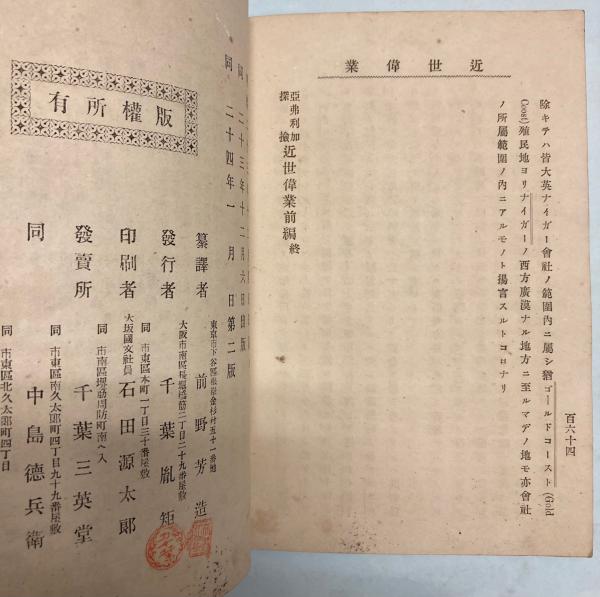 近世偉業
百六十四
除キテハ皆大英ナイガー會社ノ範圍內ニ屬シ猶ゴールドコースト(Gold
Coost)殖民地ヨリナイガーノ西方廣漠ナル地方ニ至ルマデノ地モ亦會社
ノ所屬範圍ノ內ニアルモノト揚言スルトコロナリ
亞弗利加探撿近世偉業前編終
版權所有
二十三年十二月六日出版
同二十四年一月日第二版
纂譯者
前野芳造
發行者
大阪市南區
二丁目二十九番地
千葉胤矩
印刷者
大坂國文社員
同市東區本町一丁目三十番屋敷
石田源太郞
發賣所
同市南區
周防町南ヘ入
千葉三英堂
同
同市東區南久太郞町四丁目九十九番屋敷
中島德兵衛
同市東區北久太郞町四丁目